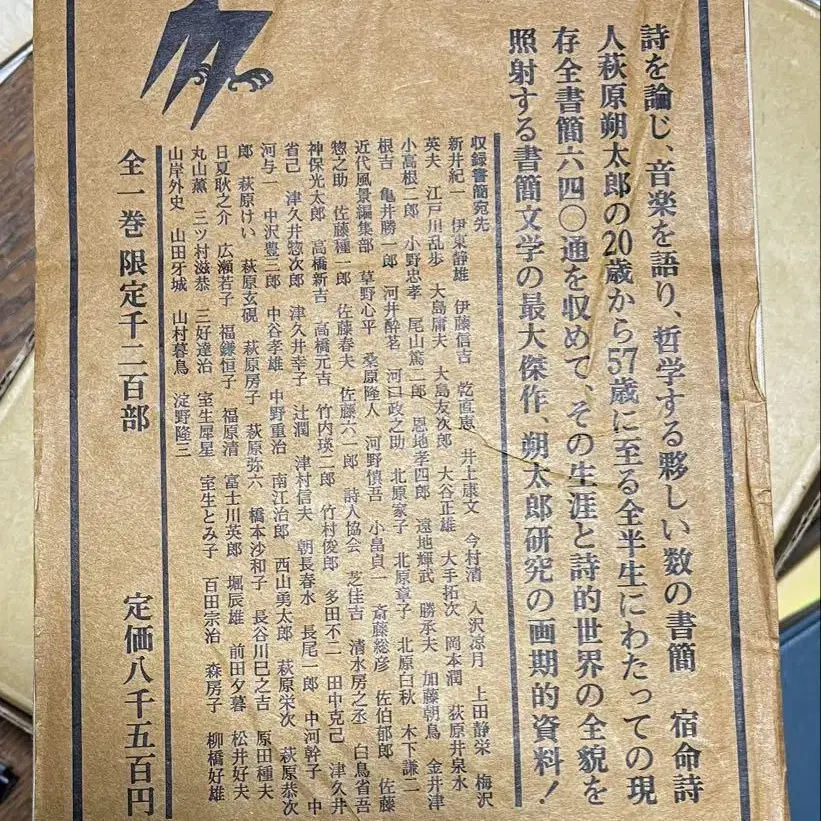 詩を論じ、音楽を語り、哲学する夥しい数の書簡　宿命詩
人萩原朔太郎の20歳から57歳に至る全半生にわたっての現
存全書簡六四〇通を収めて、その生涯と詩的世界の全貌を
照射する書簡文学の最大傑作、朔太郎研究の画期的資料！
収録書簡宛先
新井紀一　伊東静雄　伊藤信吉　乾直恵　井上康文　今村清　入沢涼月　上田静栄　梅沢
英夫　江戸川乱歩　大島庸夫　大島友次郎　大谷正雄　大手拓次　岡本潤　荻原井泉水
小高根二郎　小野忠孝　尾山篤二郎　恩地孝四郎　遠地輝武　勝承夫　加藤朝鳥　金井津
根吉　亀井勝一郎　河井酔茗　河口政之助　北原家子　北原章子　北原白秋　木下謙二
近代風景編集部　草野心平　桑原隆人　河野慎吾　小畠貞一　斎藤総彦　佐伯郁郎　佐藤
惣之助　佐藤種一郎　佐藤春夫　佐藤六一郎　詩人協会　芝佳吉　清水房之丞　白鳥省吾
神保光太郎　高橋新吉　高橋元吉　竹内瑛二郎　竹村俊郎　多田不二　田中克己　津久井
省己　津久井惣次郎　津久井幸子　辻潤　津村信夫　朝長春水　長尾一郎　中河幹子　中
河与一　中沢豊三郎　中谷孝雄　中野重治　南江治郎　西山勇太郎　萩原栄次　萩原恭次
郎　萩原けい　萩原玄硯　萩原房子　萩原弥六　橋本沙和子　長谷川巳之吉　原田種夫
日夏耿之介　広瀬若子　福鎌恒子　福原清　富士川英郎　堀辰雄　前田夕暮　松井好夫
丸山薫　三ツ村滋恭　三好達治　室生犀星　室生とみ子　百田宗治　森房子　柳橋好雄
山岸外史　山田牙城　山村暮鳥　淀野隆三
全一巻　限定千二百部　定価八千五百円